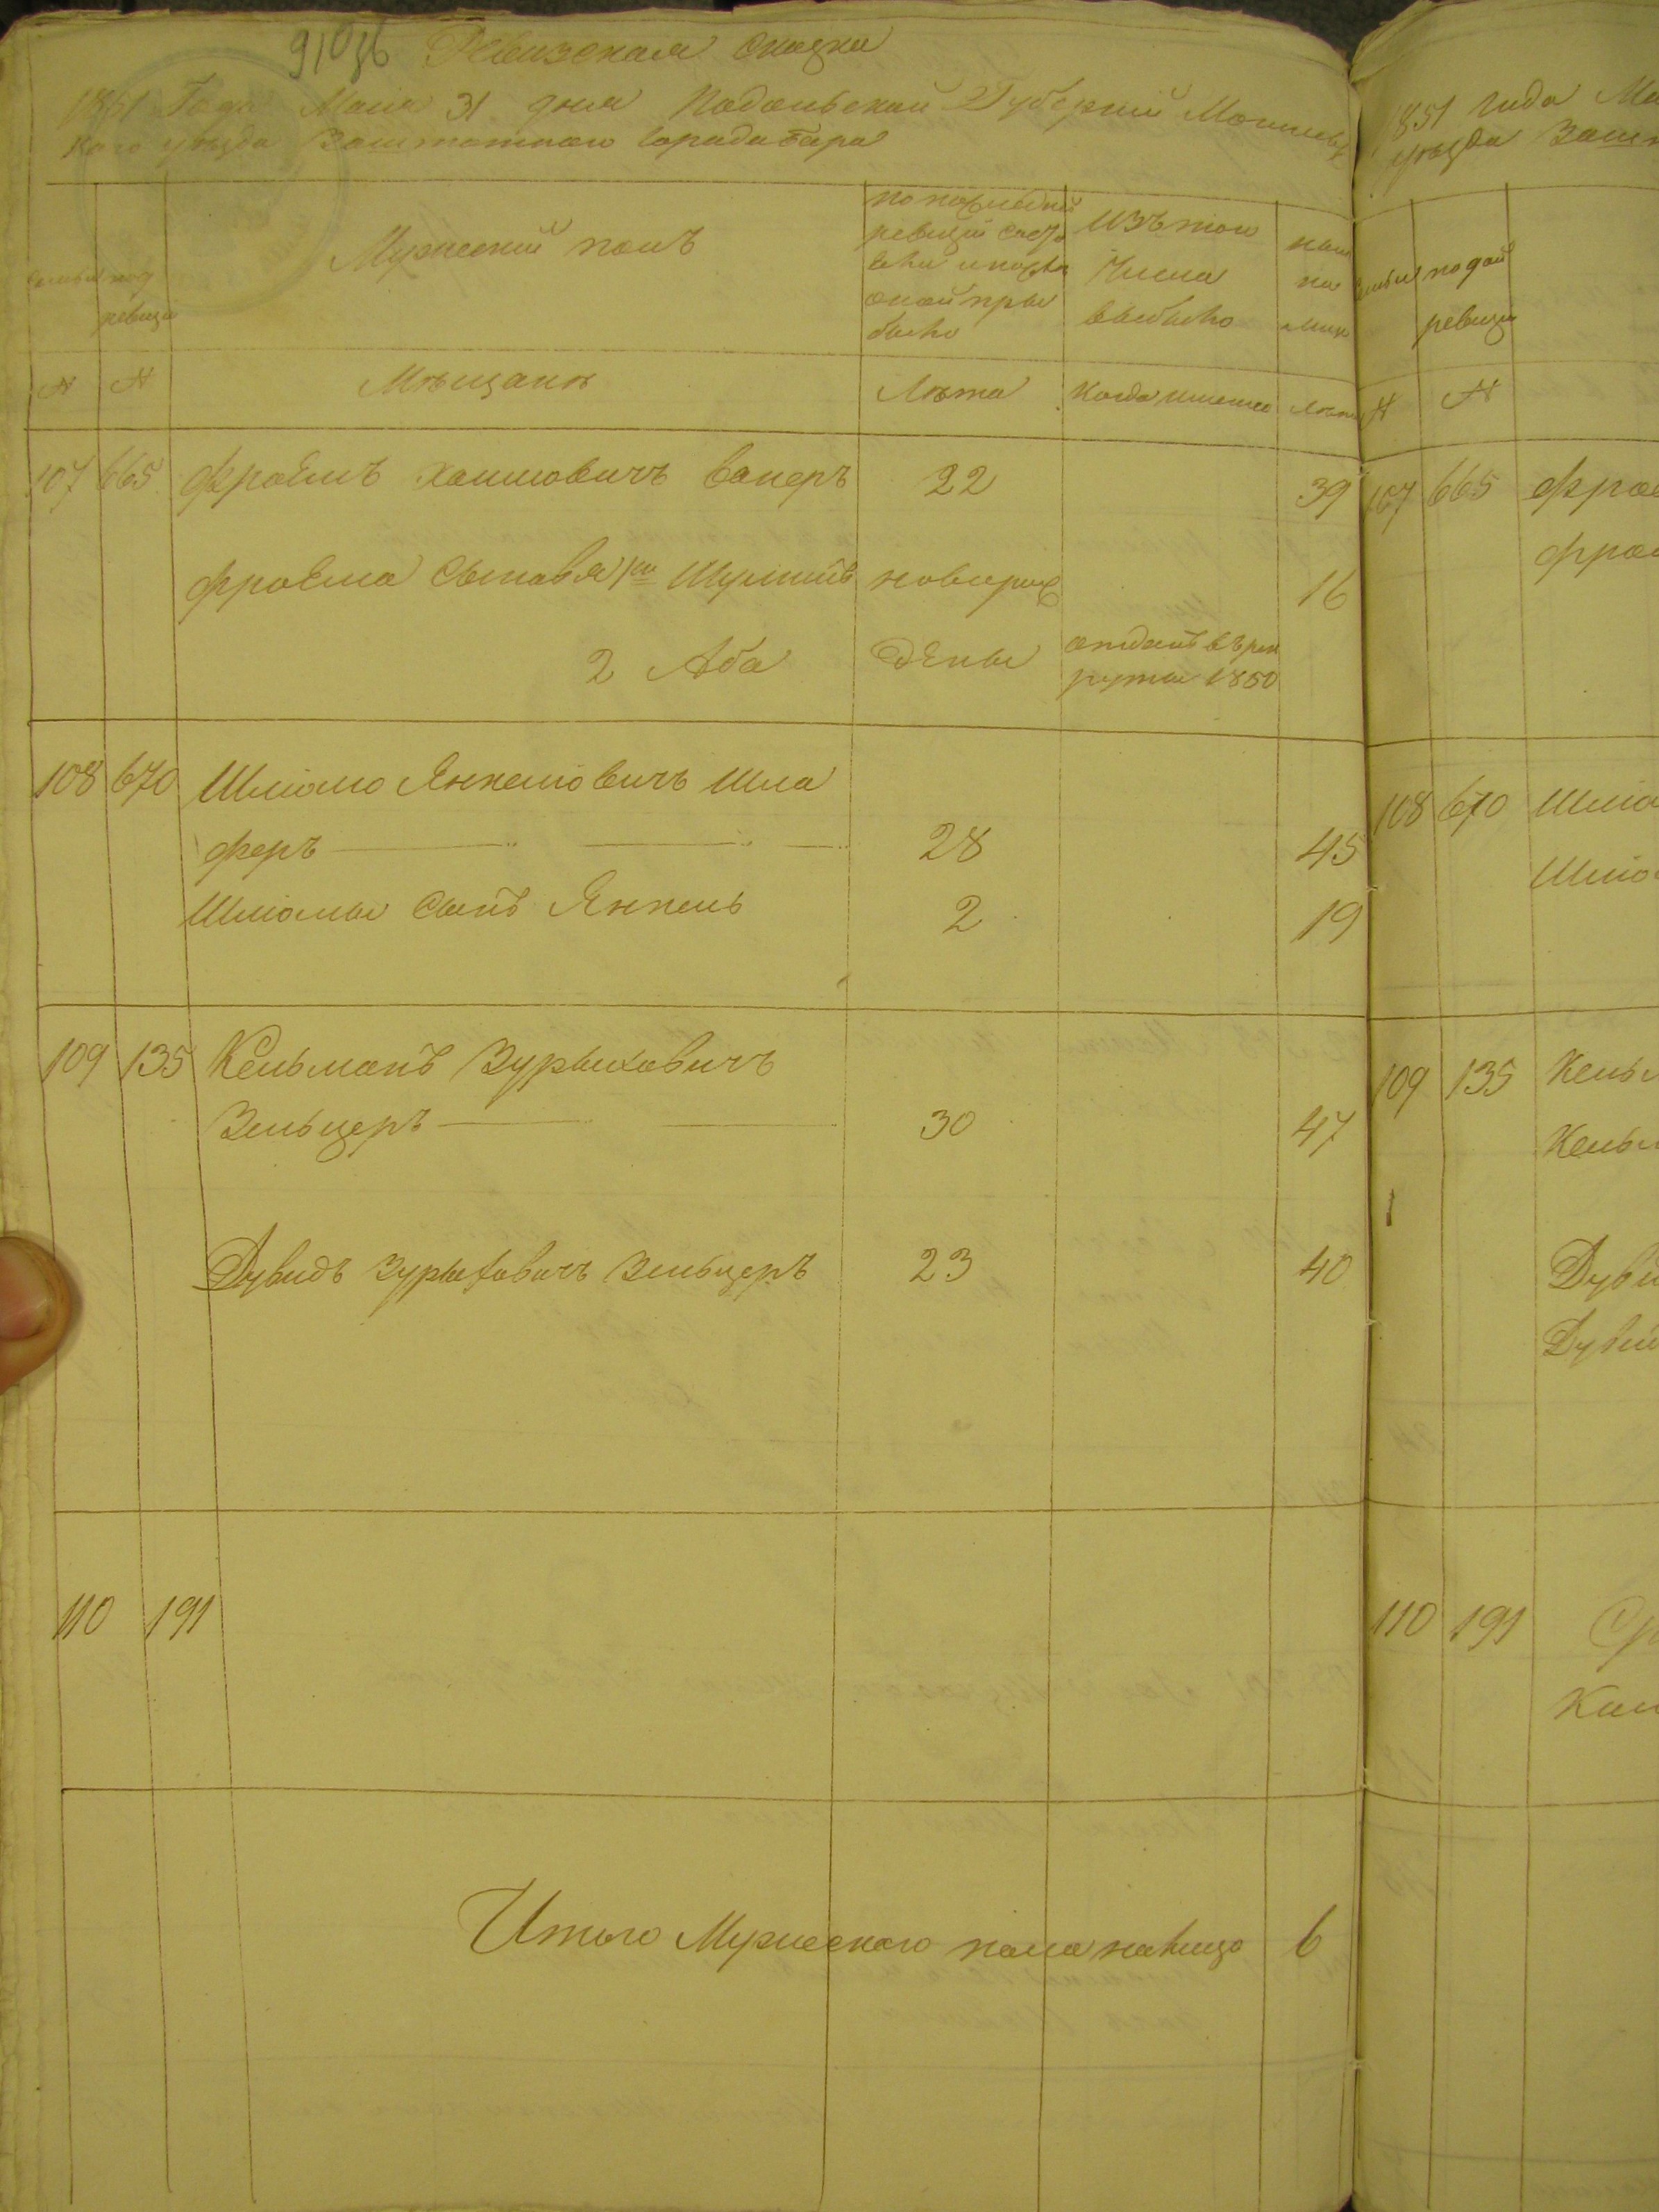 91 об
Ревизская сказка
1851 Года Маія 31 дня Подольской Губерніи Могилев
каго уѣзда Заштатнаго города Бара
Мужескій полъ
по послѣдней
ревизіи состо
яло и послѣ
оной при
было
Изъ того
Числа
выбыло
ныне
на
лицо
Семьи
по
ревизіи
№ № Мѣщане Лѣта Когда именно Лѣта
107 665 Фроимъ Хаимовичъ Ванеръ 22 39
Фроима Сыновья 1й Шулимъ новорож 16
2 Аба дены отданъ въ рек
руты 1850
108 670 Шліомо Янкелiовичъ Шля
феръ 28 45
Шліомы Сынъ Янкель 2 19
109 135 Кельманъ Зурыховичъ
Зельцеръ 30 47
Дувидъ Зурыховичъ Зельцеръ 23 40
110 191
Итого Мужескаго пола налицо 6
1851 года Ма
уѣзда Зашт
Семьи по
ревизіи
№ №
107 665 Фрои
Фрои
108 670 Шліо
Шліо
109 135 Кельм
Кельм
Дуви
Дуви
110 191